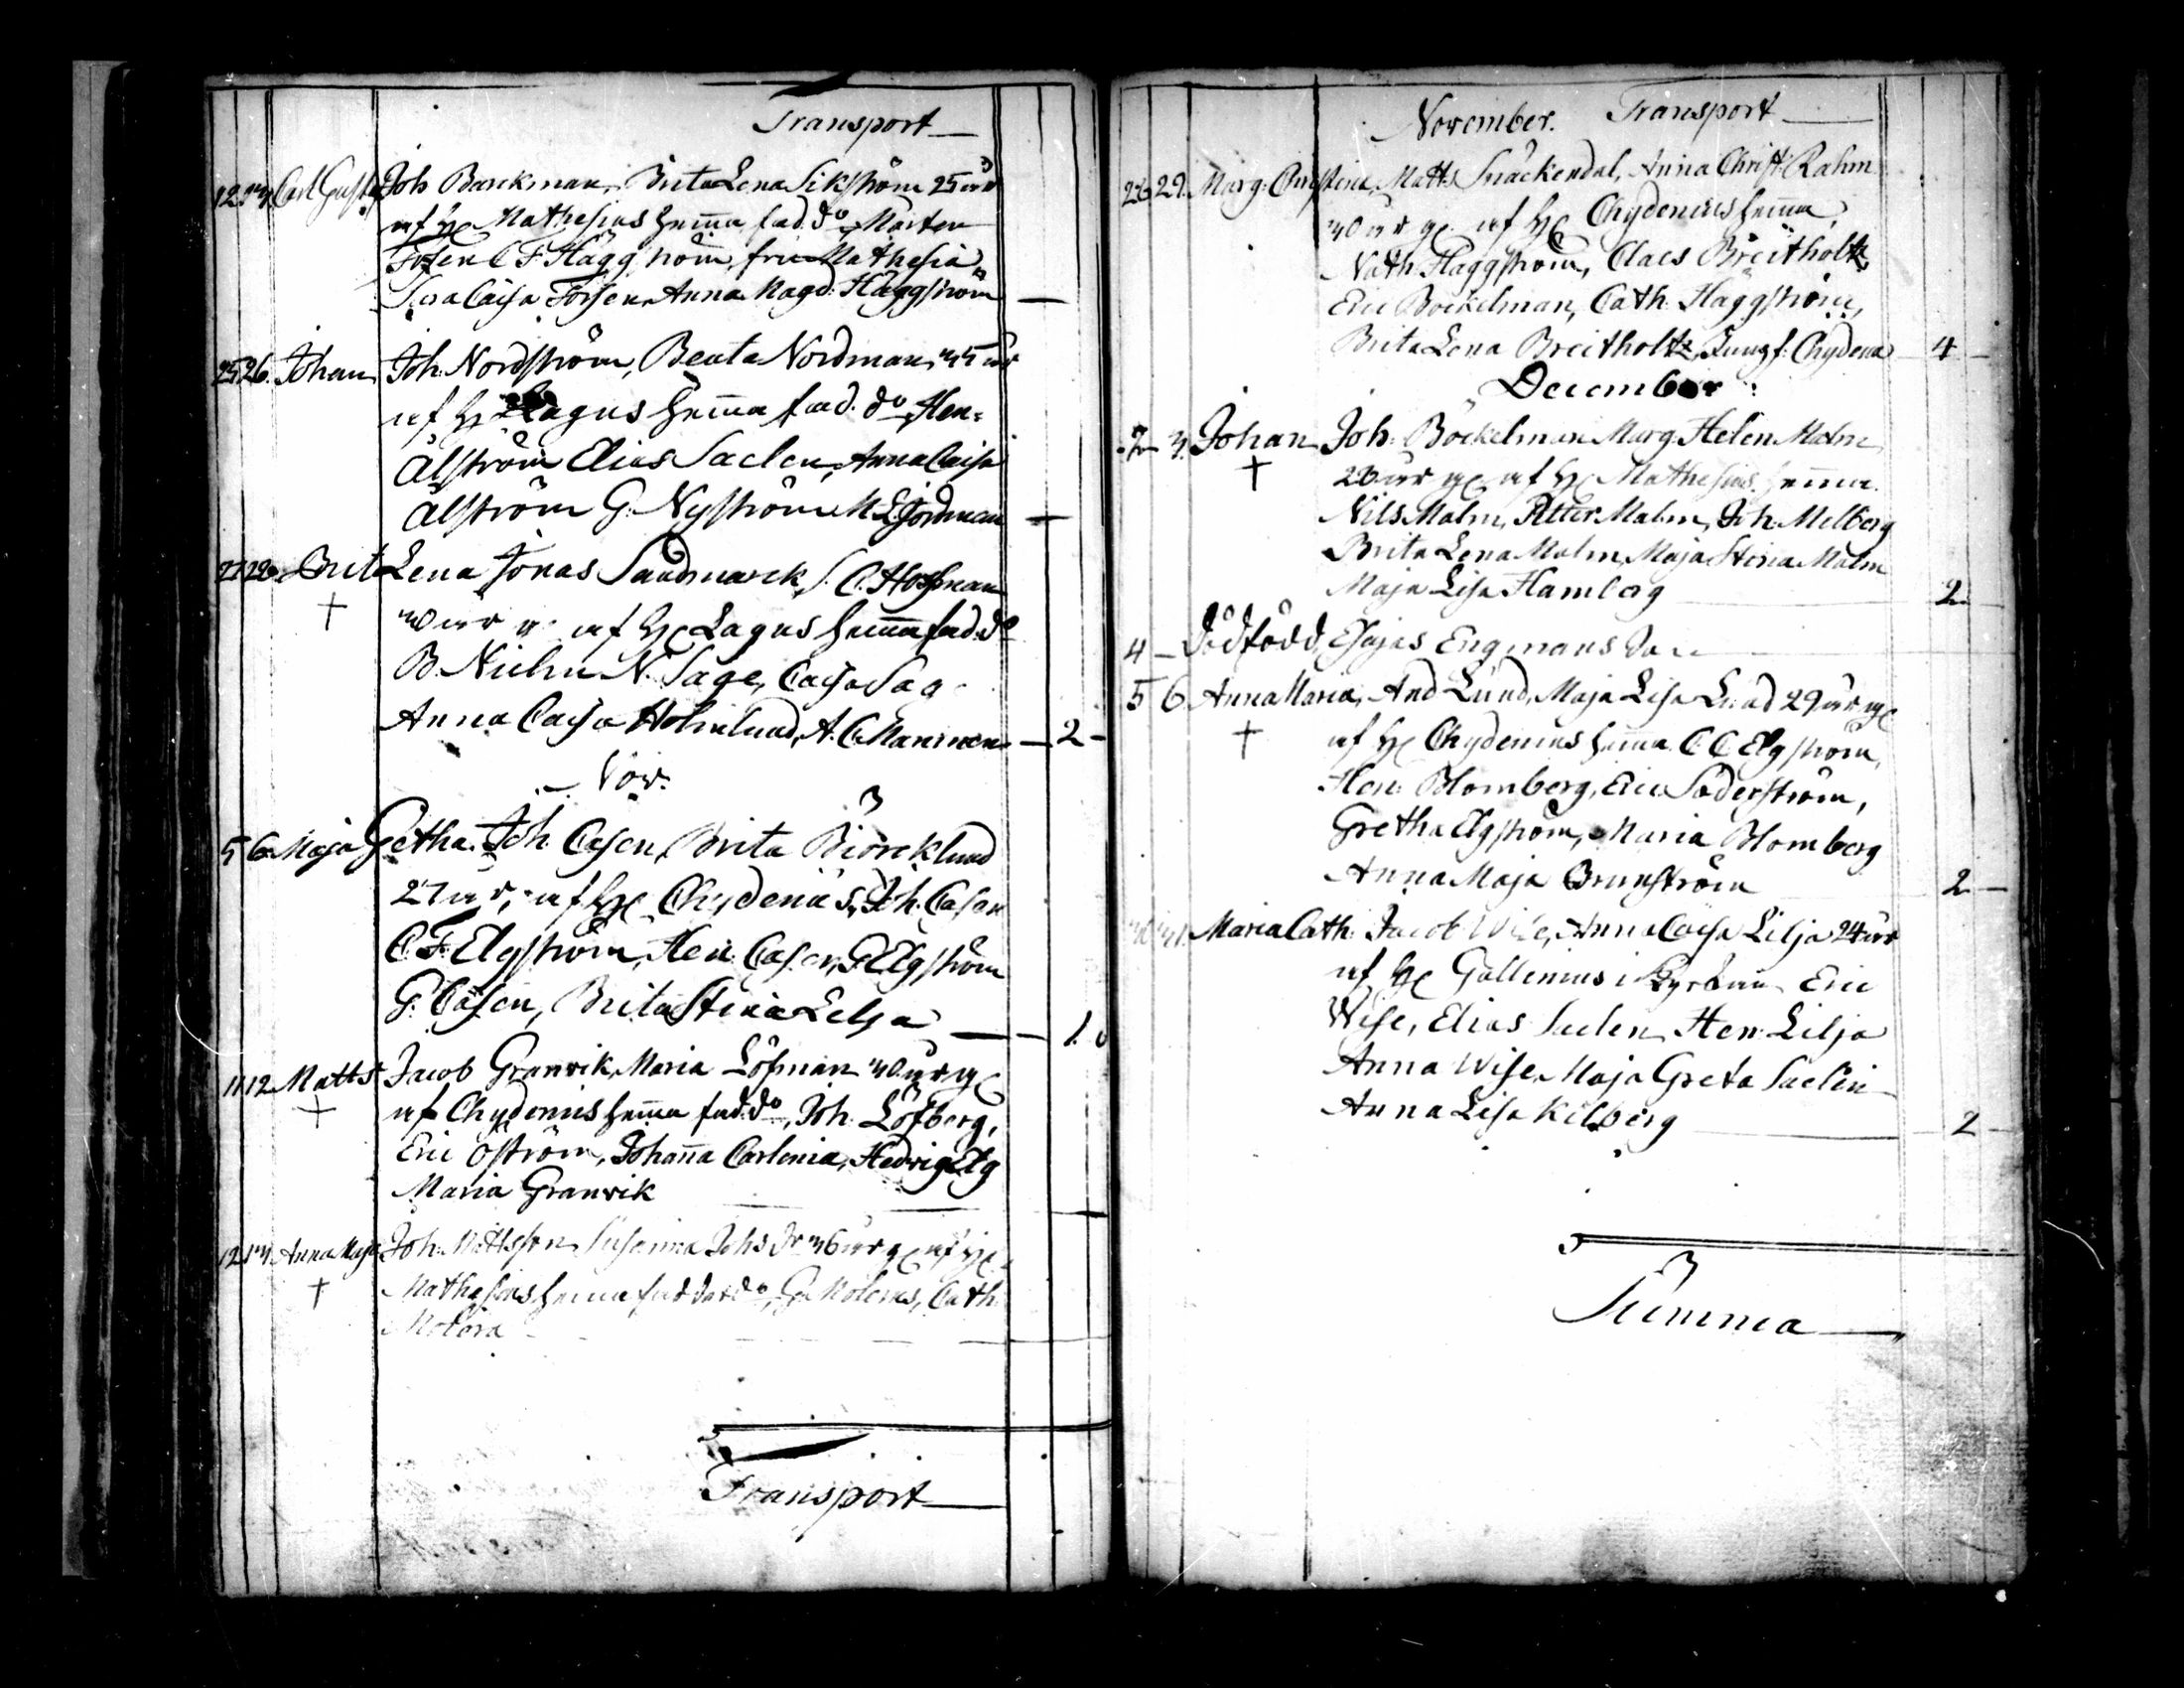 Transport
12. 13. Carl Gustaf Joh Barckman, Brita Lena Sikström 25 år
af H Mathesius hemma fad. do Mårten
Forsen C F Häggström, fru Mathesia
Sara Caisa Forsen, Anna Magd: Häggström —
25 26. Johan Joh. Nordström, Beata Nordman 35 år
af H Lagus hemma fad. do Hen:
Alström Elias Saclen, Anna Caisa
Alström G. Nyström M L Nordman —
27 28. Brita Lena Jonas Sandmarck, S. C. Hoffman
† 30 år g. af H Lagus hemma fad. do
B. Niclin N. Sage, Caisa Sag
Anna Caisa Holmlund, A. C. Manninen — 2 —
Nov.
5 6. Maja Gretha. Joh. Casen, Brita Biörcklund
27 år, af H Chydenius, Joh. Casen
C. F. Elgström, Hen: Casen, G Elgström
G. Casen, Brita Stina Lilja — 1.
11 12 Matts Jacob Granvik, Maria Löfman 30 år g
† af Chydenius hemma fad. do, Joh. Löfberg,
Eric Öström, Johanna Carlenia, Hedvig Elg
Maria Granvik —
12 13. Anna Maja Joh. Mattsson Susanna Johs Dr 36 år g af H
† Mathesius hemma faddar do, G. Molerus, Cath.
Molera —
Transport —
November. Transport —
28 29. Marg: Christina, Matts Snäckendal, Anna Christ: Rahm
30 år g. af H Chydenius hemma,
Nath. Häggström, Claes Breitholtz,
Eric Böckelman, Cath. Häggström,
Brita Lena Breitholtz, Jungf: Chydena — 4 —
December
2 3. Johan Joh: Böckelman Marg: Helen Malm
† 28 år g af H Mathesius hemma.
Nils Malm, Petter Malm, Joh: Melberg
Brita Lena Malm, Maja Stina Malm
Maja Lisa Hamberg — 2
4 — Dödfödd, Esajas Engmans
5 6 Anna Maria, And Lund, Maja Lisa Lund 29 år g
† af H Chydenius hemma C C Elgström,
Hen: Blomberg, Eric Söderström,
Gretha Elgström, Maria Blomberg
Anna Maja Brunström 2 —
30 31. Maria Cath: Jacob Wise, Anna Caisa Lilja 24 år
af H Gallenius i Eric
Wise, Elias Saclen, Hen: Lilja
Anna Wise, Maja Greta Saclin
Anna Lisa Kilberg — 2 —
Summa —